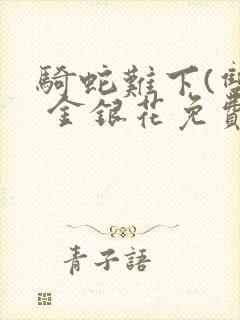 騎蛇難下(雙
金銀花免費
青子語